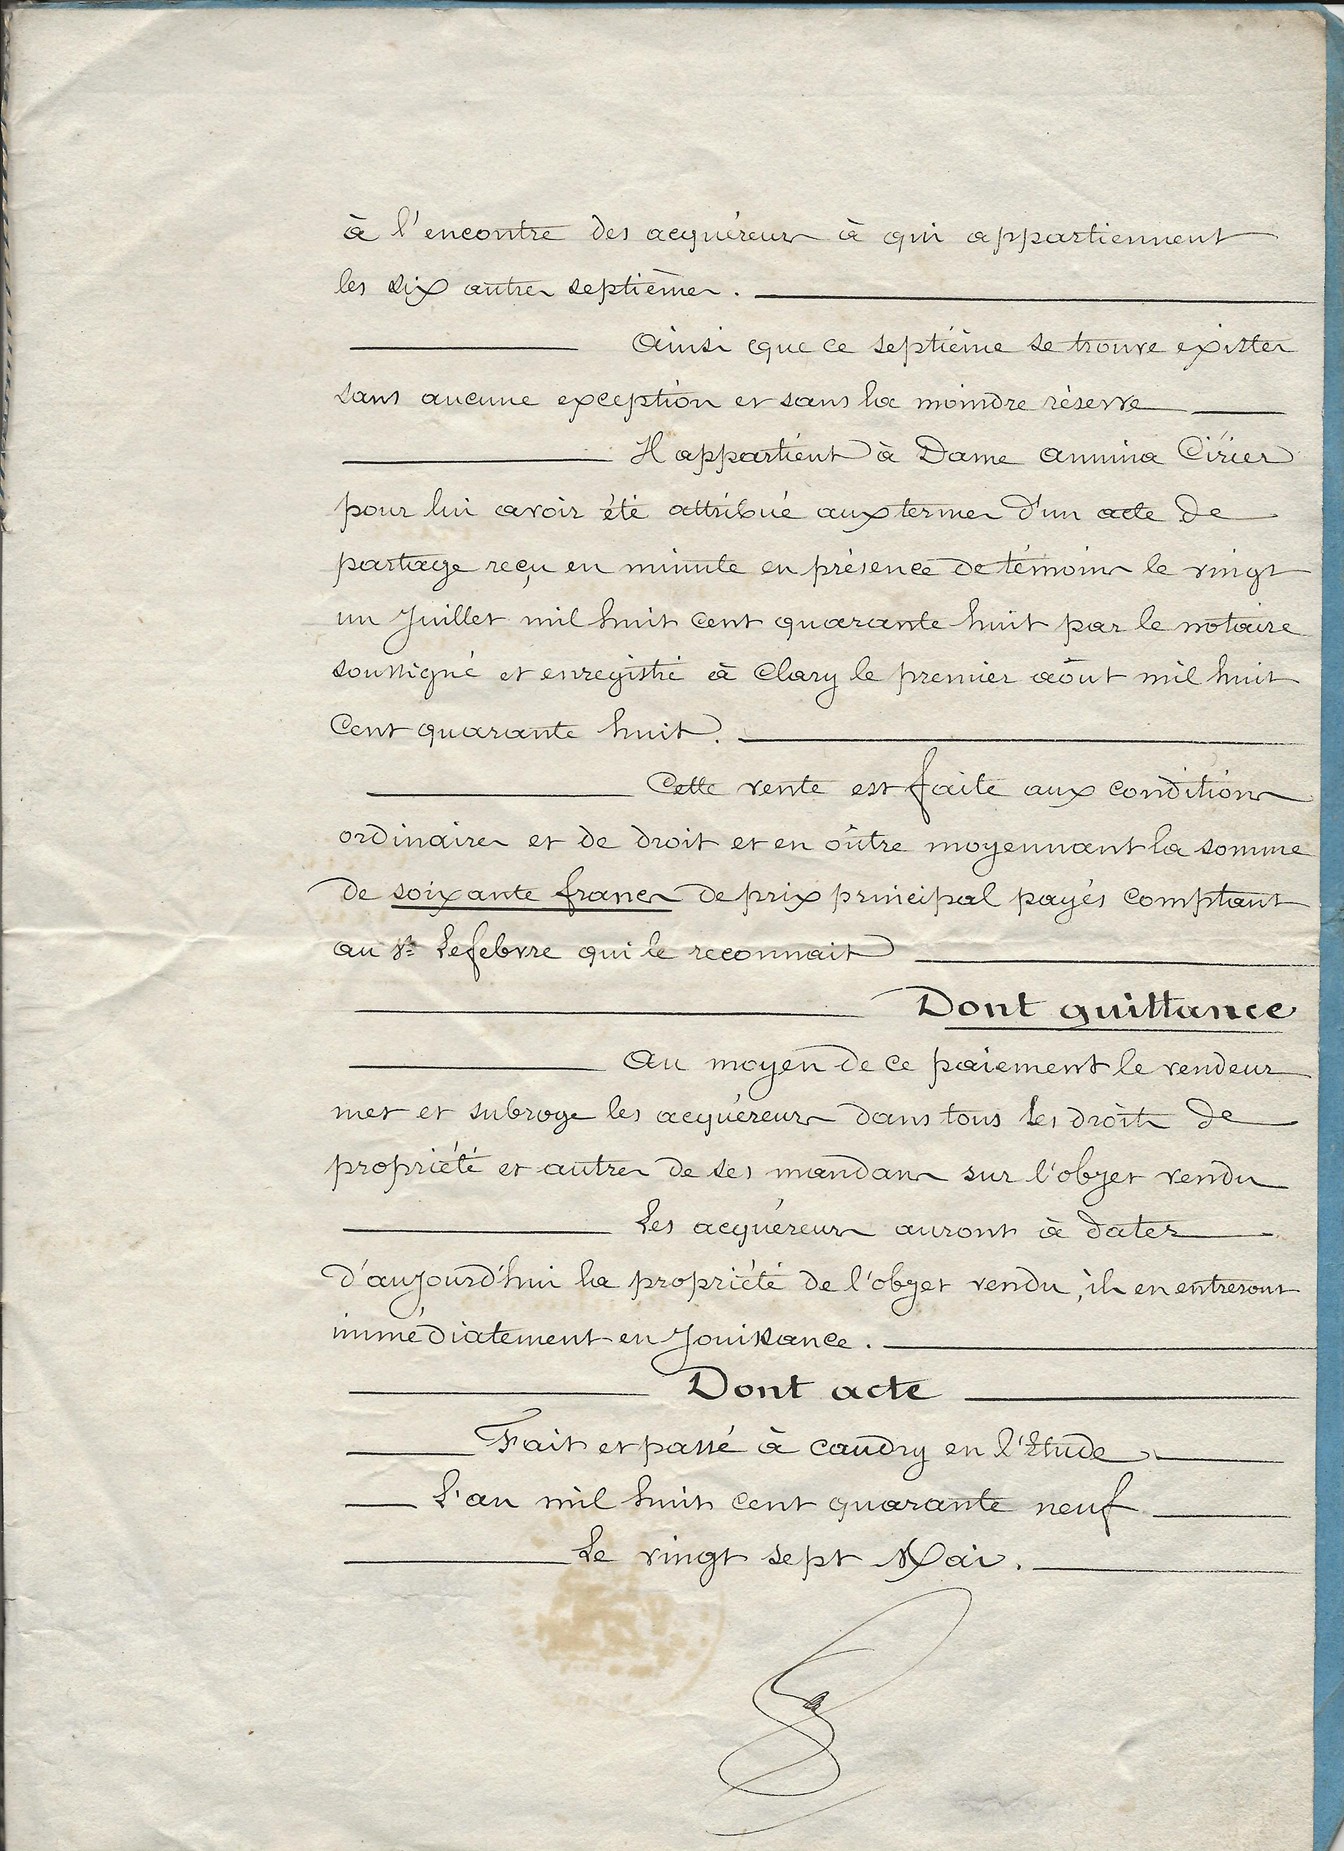 à l'encontre des acquéreurs à qui appartiennent
les six autres septièmes.
Ainsi que ce septième se trouve exister
sans aucune exception et sans la moindre réserve
Il appartient à Dame Annina Cirier
pour lui avoir été attribué aux termes d'un acte de
partage reçu en minute en présence de témoins le vingt
un Juillet mil huit cent quarante huit par le notaire
soussigné et enregistré à Clary le premier août mil huit
Cent quarante huit.
Cette vente est faite aux conditions
ordinaires et de droit et en oûtre moyennant la somme
de soixante francs de prix principal payés comptant
au Sr Lefebvre qui le reconnait
Dont quittance
Au moyen de ce paiement le vendeur
met et subroge les acquéreurs dans tous les droits de
propriété et autres de ses mandans sur l'objet vendu
Les acquéreurs auront à dater
d'aujourd'hui la propriété de l'objet vendu, ils en entreront
immédiatement en Jouissance.
Dont acte
Fait et passé à Caudry en l'Etude
L'an mil huit cent quarante neuf
Le vingt sept Mai.